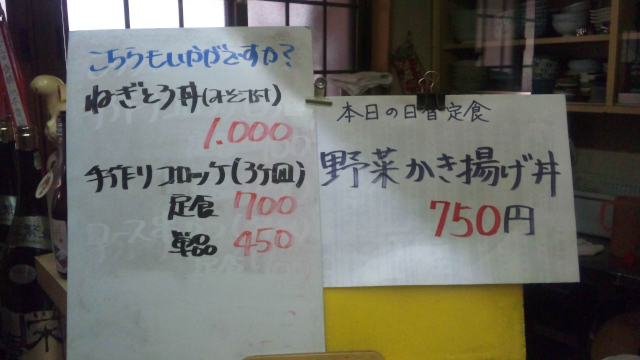 こちらもいかがですか?
ねぎとろ丼(みそ汁付)
1.000
手作りコロッケ(3ヶ皿)
定食 700
単品 450
本日の日替定食
野菜かき揚げ丼
750円